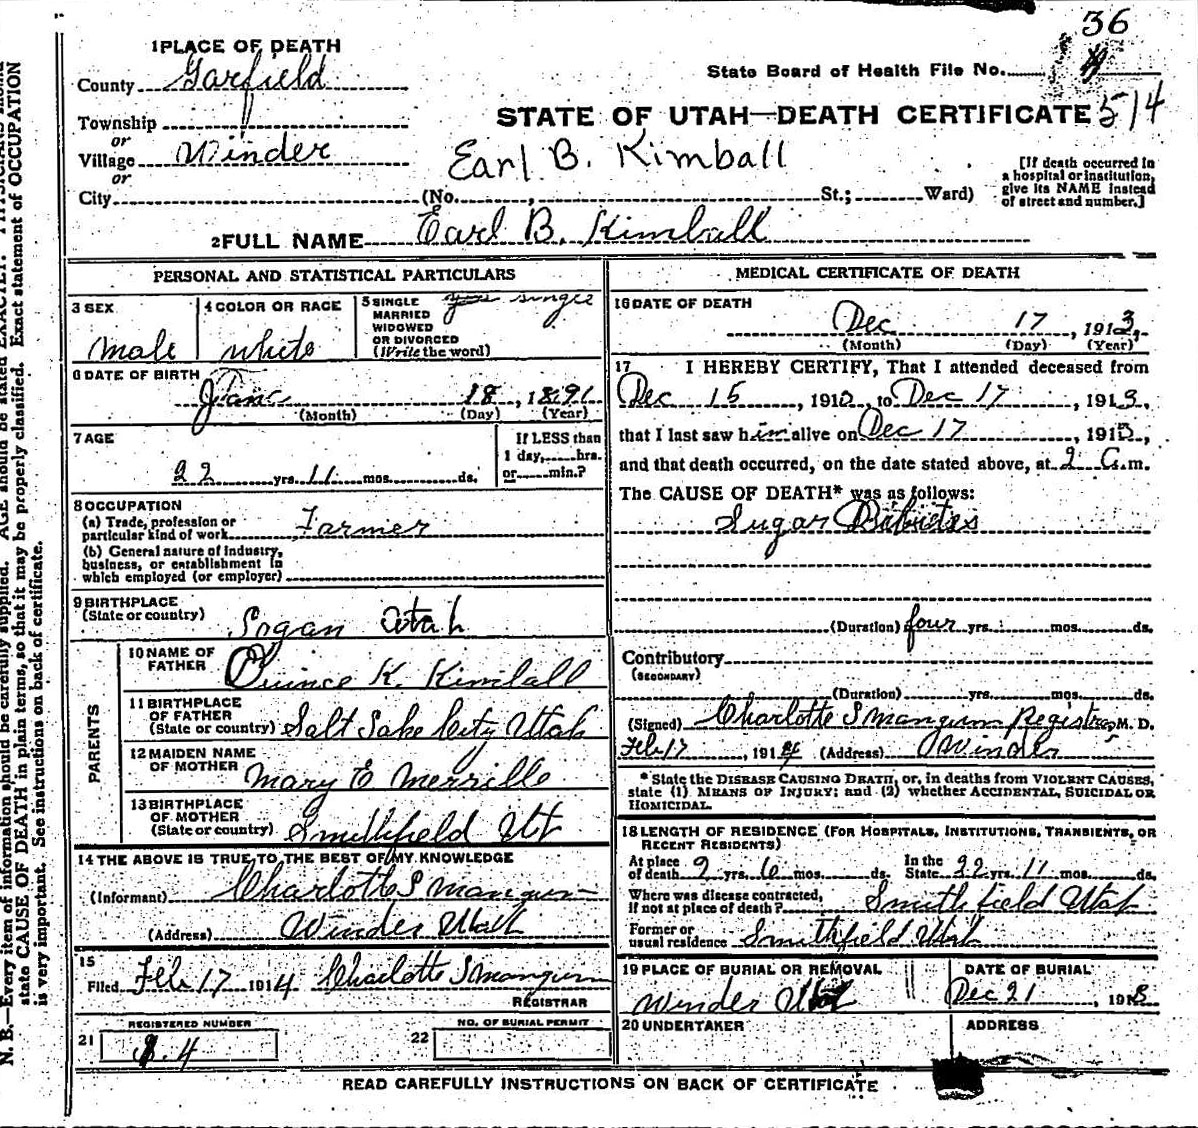 36
1 PLACE OF DEATH
County Garfield
State Board of Health File No.
Township
STATE OF UTAH—DEATH CERTIFICATE 514
or
Village Winder
Earl B. Kimball
or
City (No. , St.; Ward)
[If death occurred in
a hospital or institution,
give its NAME instead
of street and number.]
2 FULL NAME Earl B. Kimball
PERSONAL AND STATISTICAL PARTICULARS
3 SEX
male
4 COLOR OR RACE
white
5 SINGLE
MARRIED
WIDOWED
OR DIVORCED
(Write the word)
single
6 DATE OF BIRTH
18, 1891
(Month) (Day) (Year)
7 AGE
22 yrs. 11 mos. ds.
If LESS than
1 day, hrs.
or min.?
8 OCCUPATION
(a) Trade, profession or
particular kind of work Farmer
(b) General nature of industry,
business, or establishment in
which employed (or employer)
9 BIRTHPLACE
(State or country) Logan Utah
PARENTS
10 NAME OF
FATHER Quince K. Kimball
11 BIRTHPLACE
OF FATHER
(State or country) Salt Lake City Utah
12 MAIDEN NAME
OF MOTHER Mary E Merrille
13 BIRTHPLACE
OF MOTHER
(State or country) Smithfield Ut
14 THE ABOVE IS TRUE TO THE BEST OF MY KNOWLEDGE
(Informant) Charlotte S Mangum
(Address) Winder Utah
15
Filed Feb 17 1914 Charlotte S Mangum
REGISTRAR
21 REGISTERED NUMBER
4
22 NO. OF BURIAL PERMIT
MEDICAL CERTIFICATE OF DEATH
16 DATE OF DEATH
Dec 17, 1913,
(Month) (Day) (Year)
17 I HEREBY CERTIFY, That I attended deceased from
Dec 15, 1913, to Dec 17, 1913,
that I last saw him alive on Dec 17, 1913,
and that death occurred, on the date stated above, at 2 a.m.
The CAUSE OF DEATH* was as follows:
Sugar Diabetes
(Duration) four yrs. mos. ds.
Contributory
(SECONDARY)
(Duration) yrs. mos. ds.
(Signed) Charlotte S Mangum Registrar, M. D.
Feb 17, 1914 (Address) Winder
* State the DISEASE CAUSING DEATH, or, in deaths from VIOLENT CAUSES,
state (1) MEANS OF INJURY; and (2) whether ACCIDENTAL, SUICIDAL OR
HOMICIDAL.
18 LENGTH OF RESIDENCE (FOR HOSPITALS, INSTITUTIONS, TRANSIENTS, OR
RECENT RESIDENTS)
At place
of death 2 yrs. 6 mos. ds.
In the
State 22 yrs. 11 mos. ds.
Where was disease contracted,
If not at place of death? Smithfield Utah
Former or
usual residence Smithfield Utah
19 PLACE OF BURIAL OR REMOVAL
Winder Utah
DATE OF BURIAL
Dec 21, 1913
20 UNDERTAKER
ADDRESS
READ CAREFULLY INSTRUCTIONS ON BACK OF CERTIFICATE
N. B.—Every item of information should be carefully supplied. AGE should be stated EXACTLY.
state CAUSE OF DEATH in plain terms, so that it may be properly classified. Exact statement of OCCUPATION
is very important. See instructions on back of certificate.